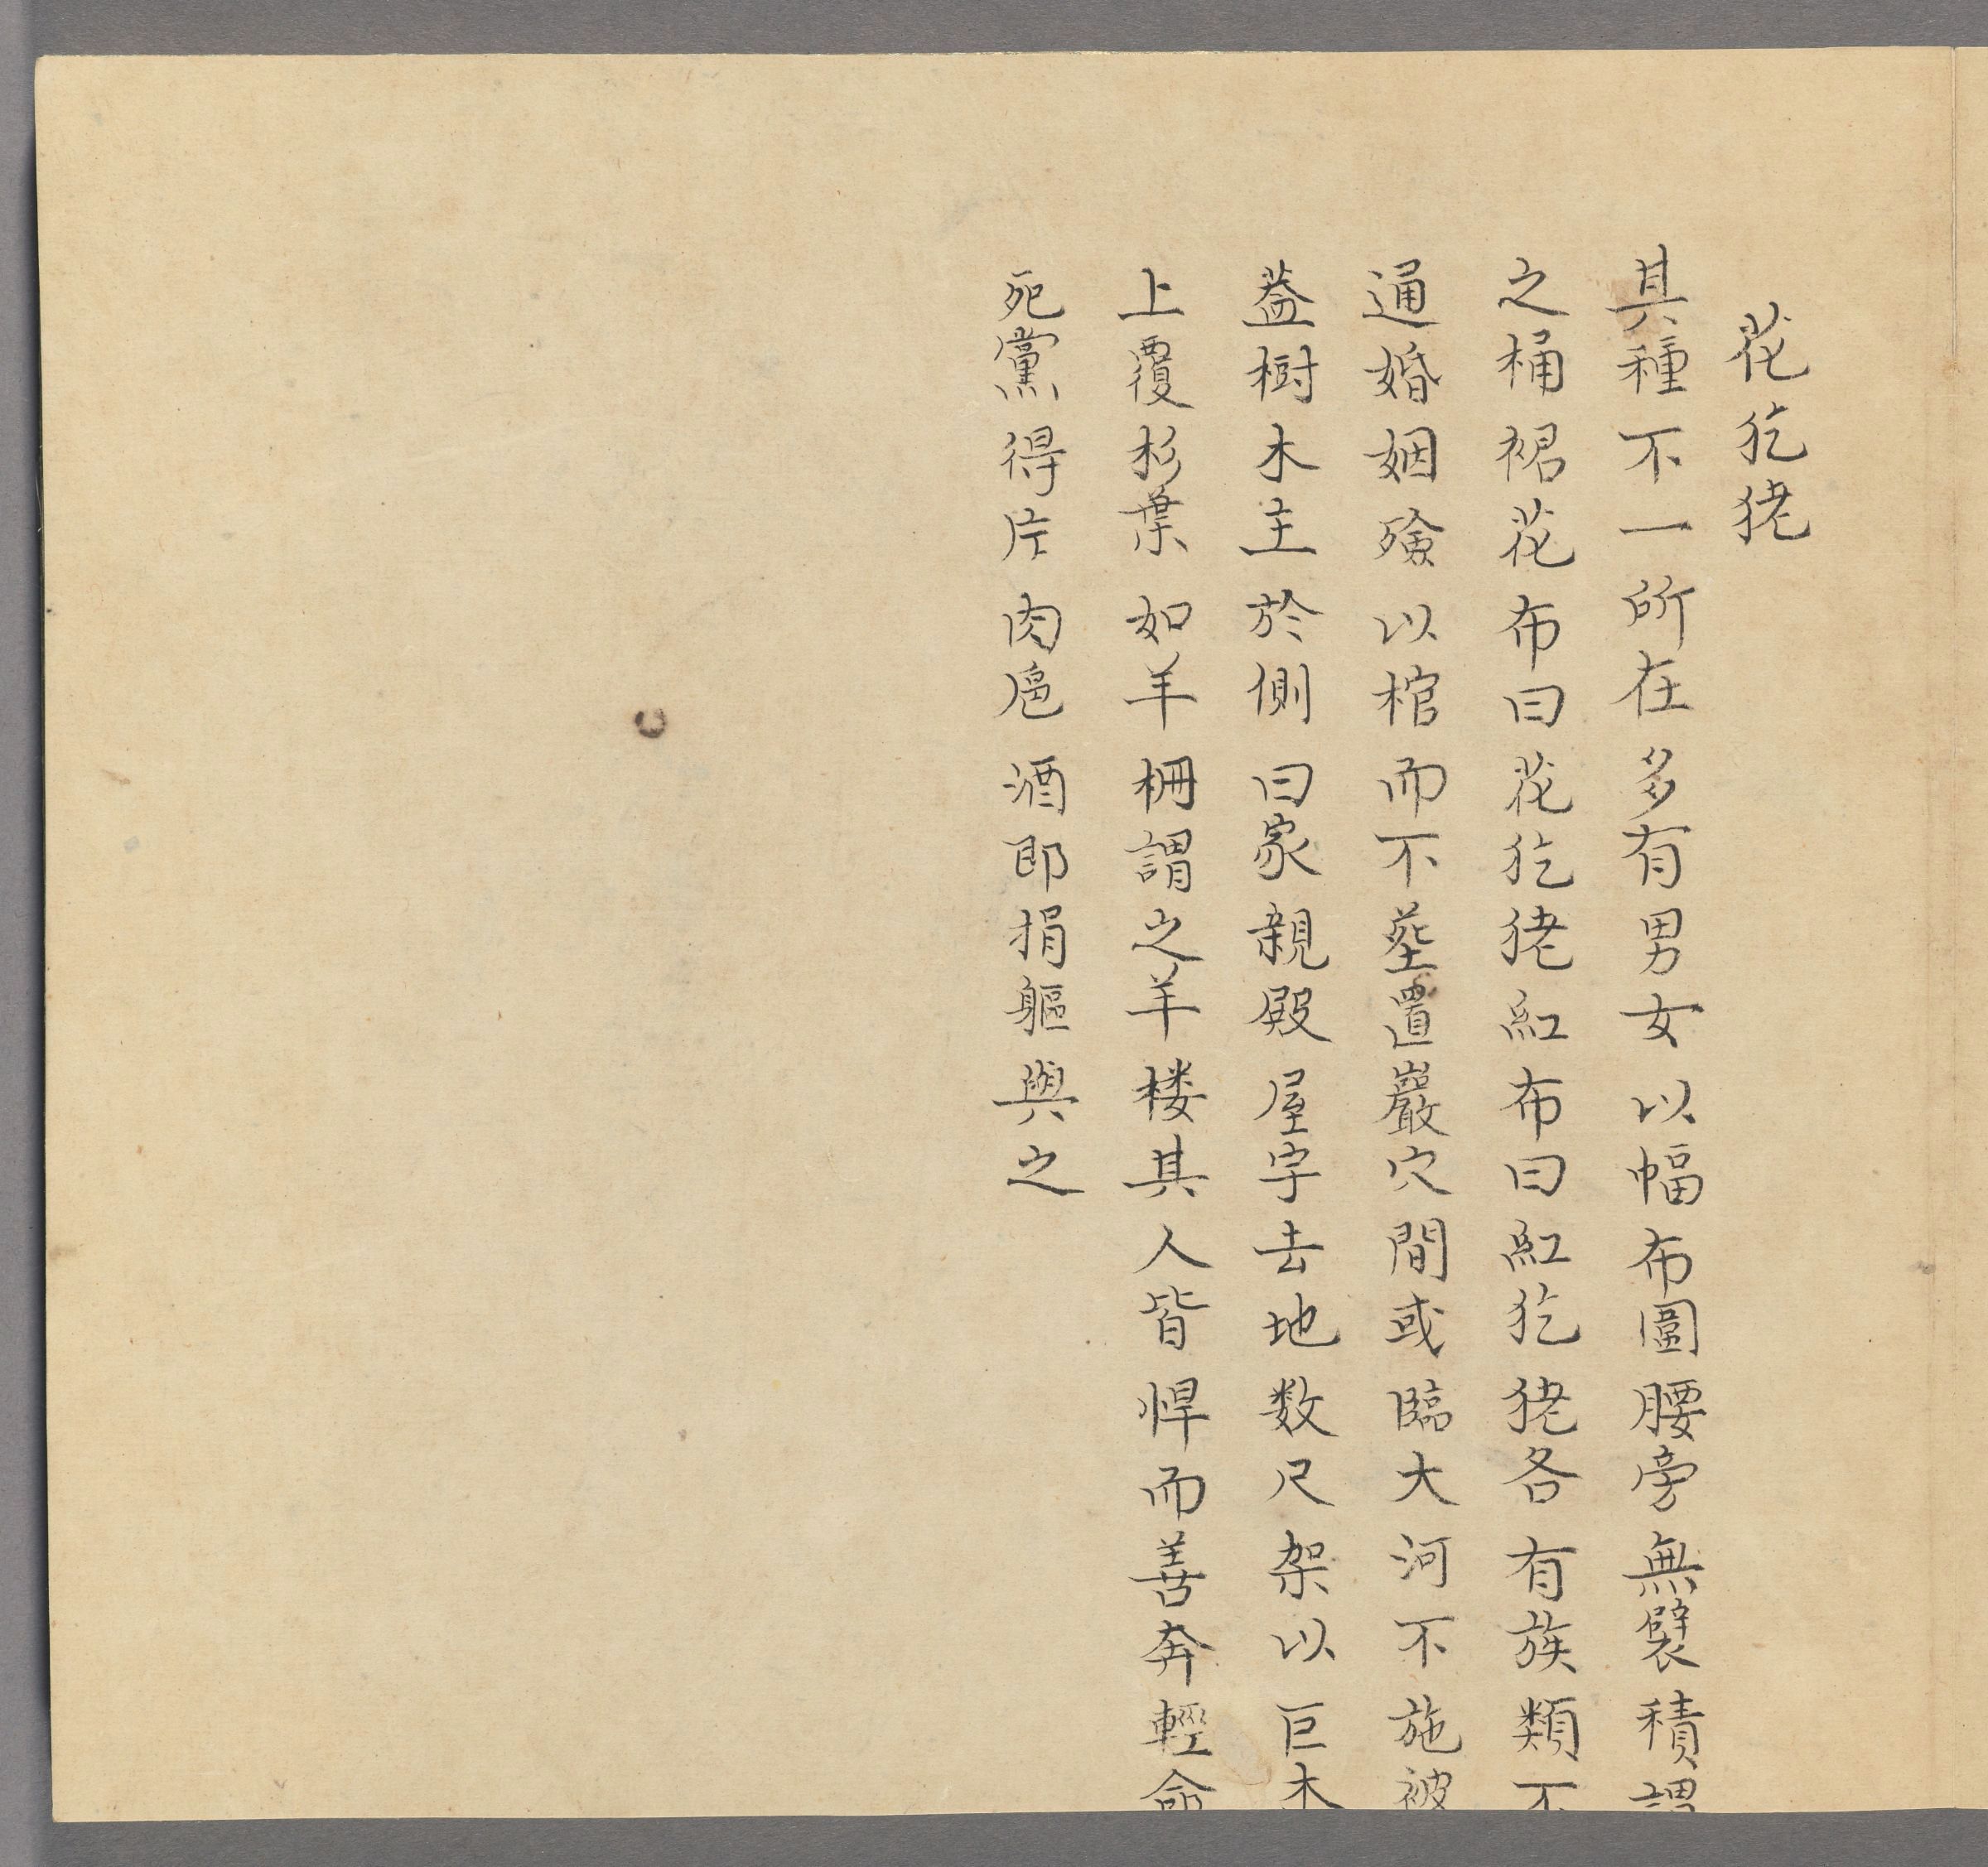 花犵狫
其種不一所在多有男女以幅布圍腰旁無襞積謂
之桶裙花布曰花犵狫紅布曰紅犵狫各有族類不
通婚姻殮以棺而不塟置巖穴間或臨大河不施被
蓋樹木主於側曰家親殿屋宇去地数尺架以巨木
上覆杉葉如羊柵謂之羊楼其人皆悍而善奔輕命
死黨得片肉巵酒即捐軀與之